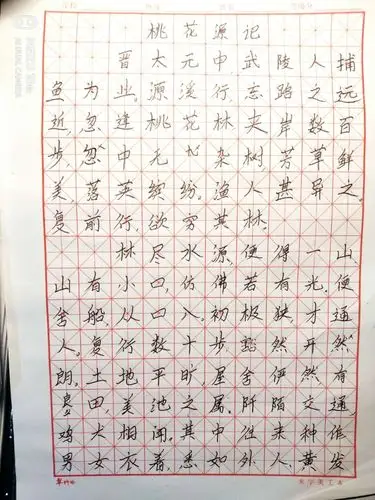 桃花源记
晋太元中武陵人捕
鱼为业。源溪行,忘路之远
近,忽逢桃花林夹岸数百
步,忽中无九杂树芳草鲜
美,落英缤纷。渔人甚异之。
复前行,欲穷其林.
林尽水源,便得一山
山有小口,仿佛若有光,便
舍船,从口入。初极狭,才通
人。复行数十步,豁然开然
朗。土地平旷,屋舍俨然有
良田,美池之属,阡陌交通,
鸡犬相闻。其中往来种作
男女衣着,悉如外人,黄发
米字美工本